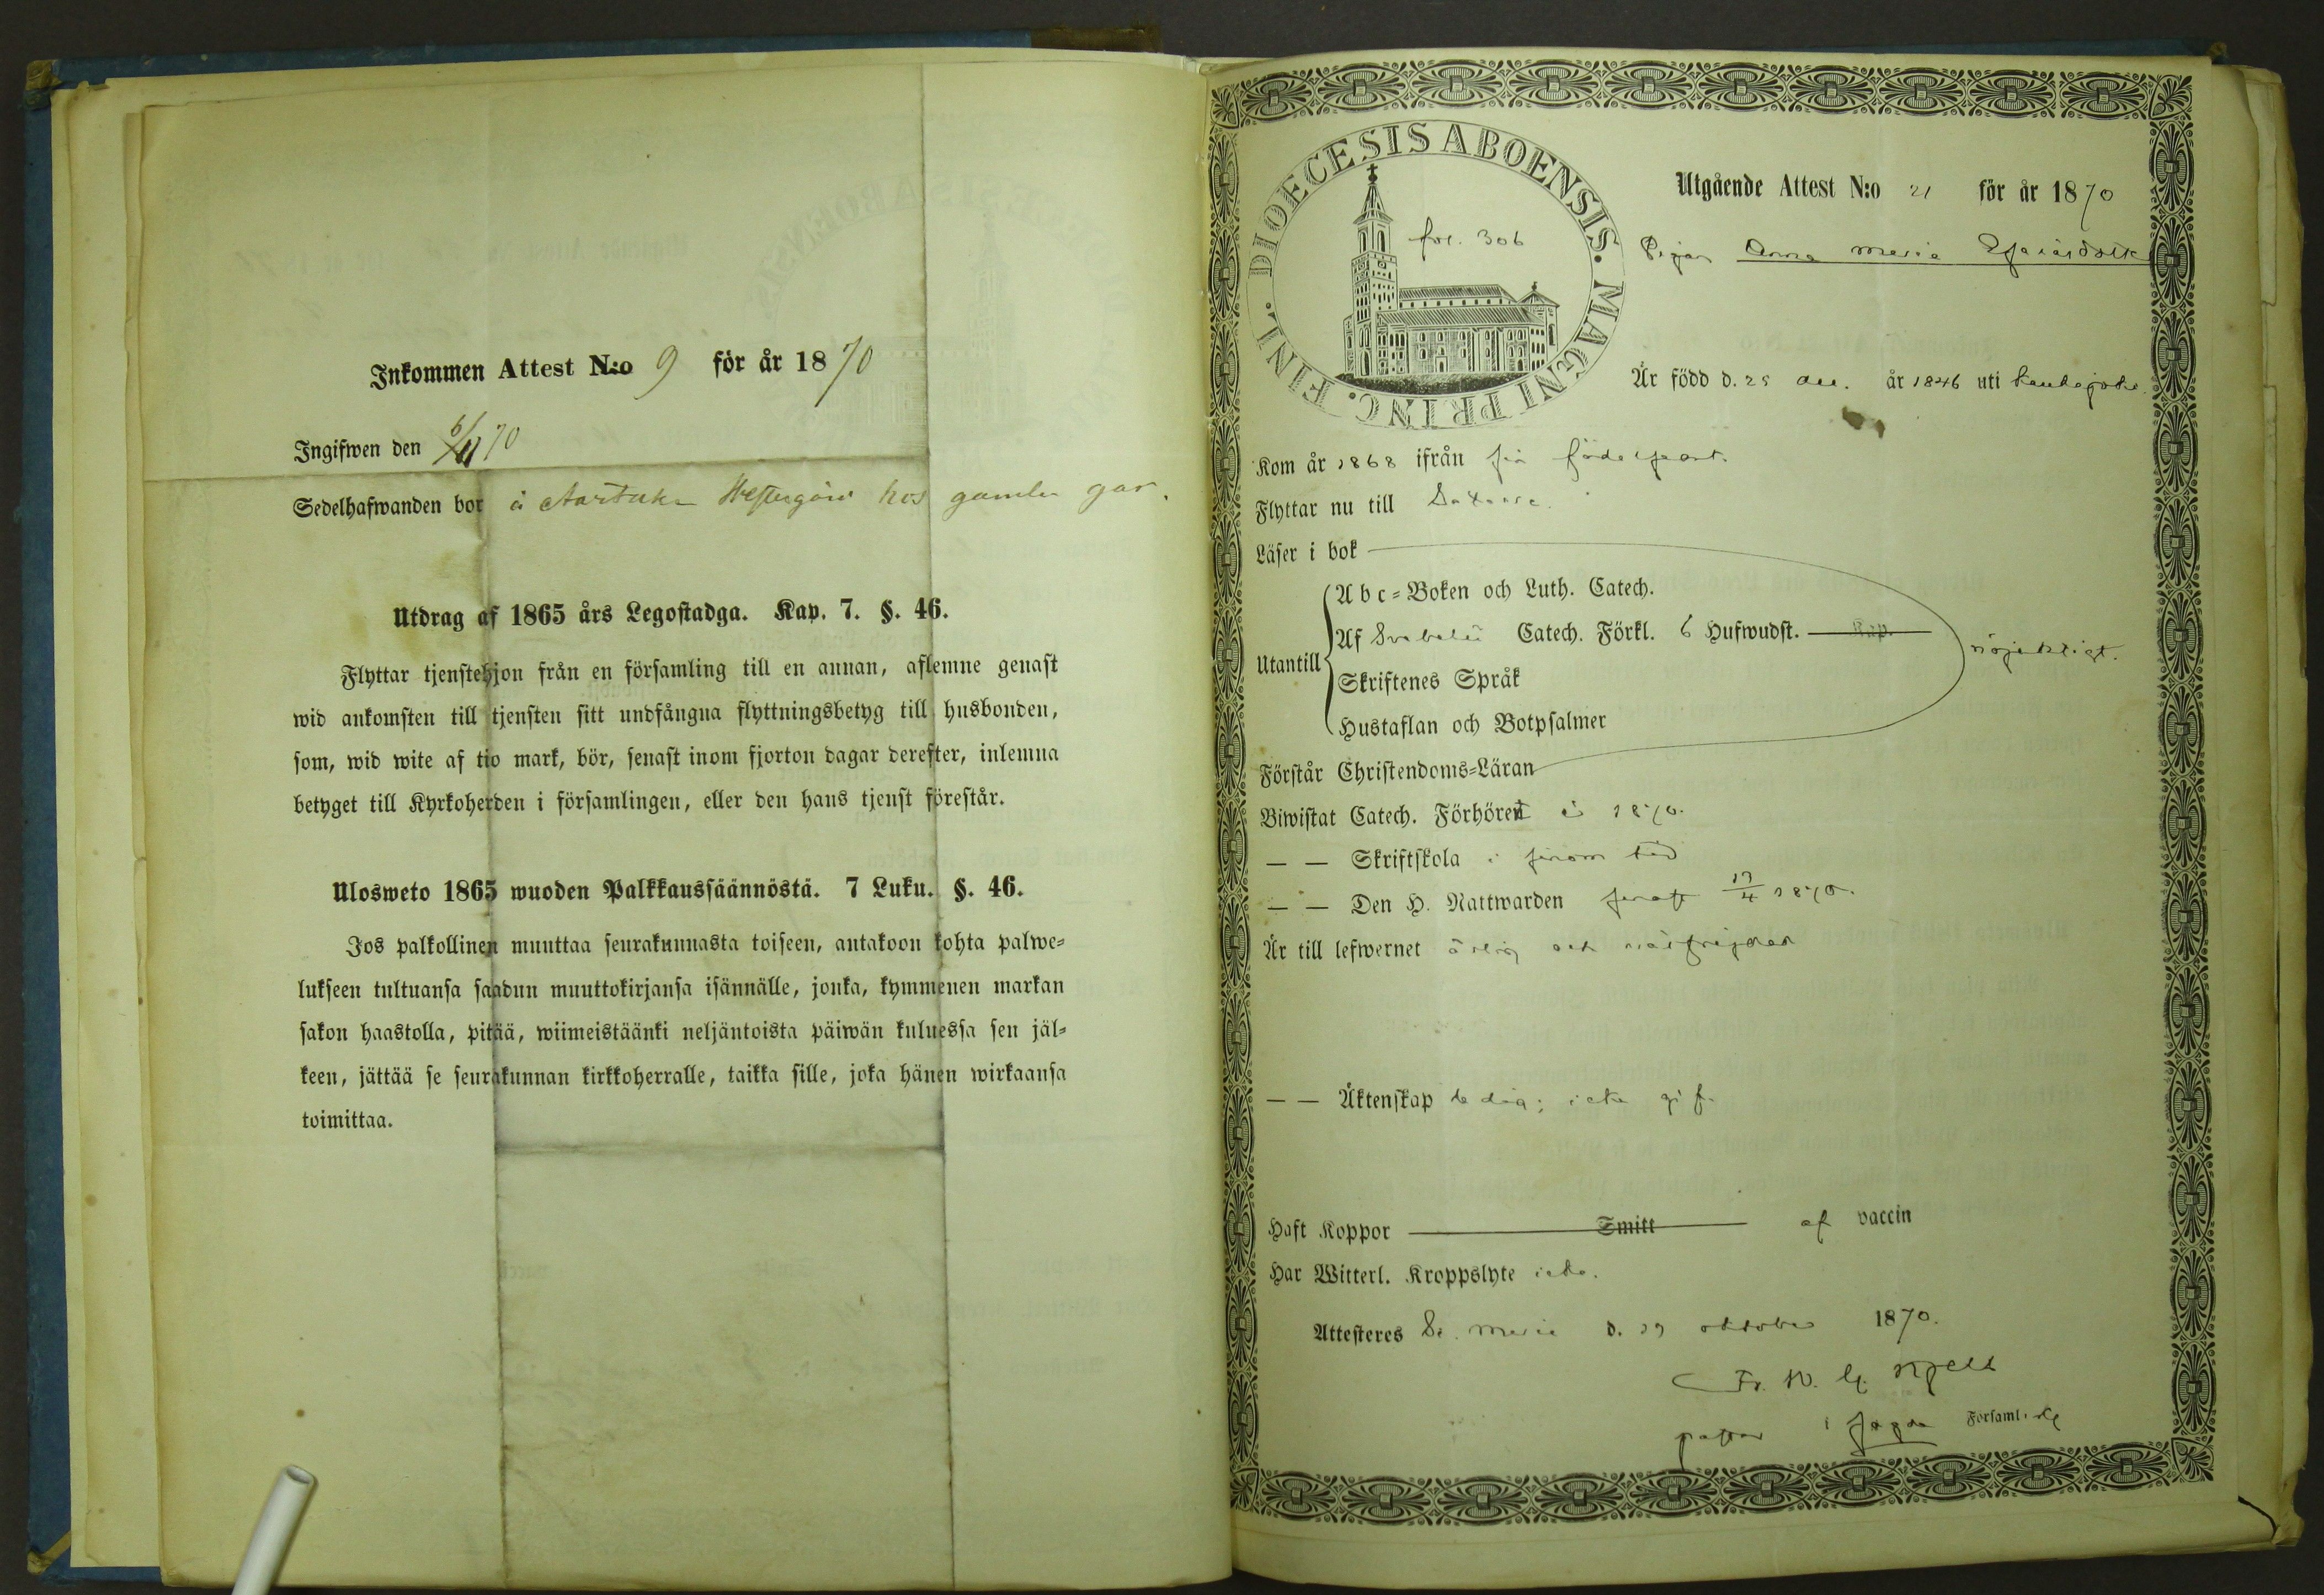 Inkommen Attest N:o 9 för år 1870
Ingifwen den 6/11 70
Sedelhafwanden bor å Hestergård hos gamla
Utdrag af 1865 års Legostadga. Kap. 7. §. 46.
Flyttar tjenstehjon från en församling till en annan, aflemne genast
wid ankomsten till tjensten sitt undfångna flyttningsbetyg till husbonden,
som, wid wite af tio mark, bör, senast inom fjorton dagar derefter, inlemna
betyget till Kyrkoherden i församlingen, eller den hans tjenst förestår.
Ulosweto 1865 wuoden Palkkaussäännöstä. 7 Luku. §. 46.
Jos palkollinen muuttaa seurakunnasta toiseen, antakoon kohta palwe=
lukseen tultuansa saadun muuttokirjansa isännälle, jonka, kymmenen markan
sakon haastolla, pitää, wiimeistäänki neljäntoista päiwän kuluessa sen jäl=
keen, jättää se seurakunnan kirkkoherralle, taikka sille, joka hänen wirkaansa
toimittaa.
DIOECESIS ABOENSIS. MAGNI PRINC. FINL.
fol. 306
Utgående Attest N:o 21 för år 1870
Pigan Anna Maria
Är född d. 25 dec. år 1846 uti
Kom år 1868 ifrån sin födelseort.
Flyttar nu till
Läser i bok
Utantill
A b c=Boken och Luth. Catech.
Af Svebelii Catech. Förkl. 6 Hufwudst. Kap.
Skriftenes Språk
Hustaflan och Botpsalmer
nöjaktigt.
Förstår Christendoms=Läran
Biwistat Catech. Förhöret i 1870.
— — Skriftskola i sinom tid
— — Den H. Nattwarden senast 17/4 1870.
Är till lefwernet ärlig och wälfrejdad
— — Äktenskap ledig; icke gift
Haft Koppor Smitt af vaccin
Har Witterl. Kroppslyte icke.
Attesteres S:t Marie d. 29 oktober 1870.
Fr. W. G. Hjelt
pastor i sagde Församling